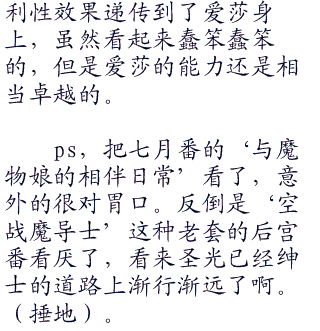 利性效果递传到了爱莎身
上，虽然看起来蠢笨蠢笨
的，但是爱莎的能力还是相
当卓越的。
ps，把七月番的‘与魔
物娘的相伴日常’看了，意
外的很对胃口。反倒是‘空
战魔导士’这种老套的后宫
番看厌了，看来圣光已经绅
士的道路上渐行渐远了啊。
（捶地）。